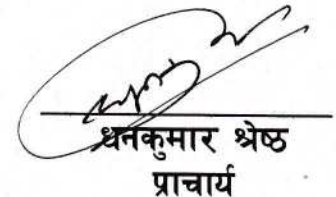 धनकुमार श्रेष्ठ
प्राचार्य